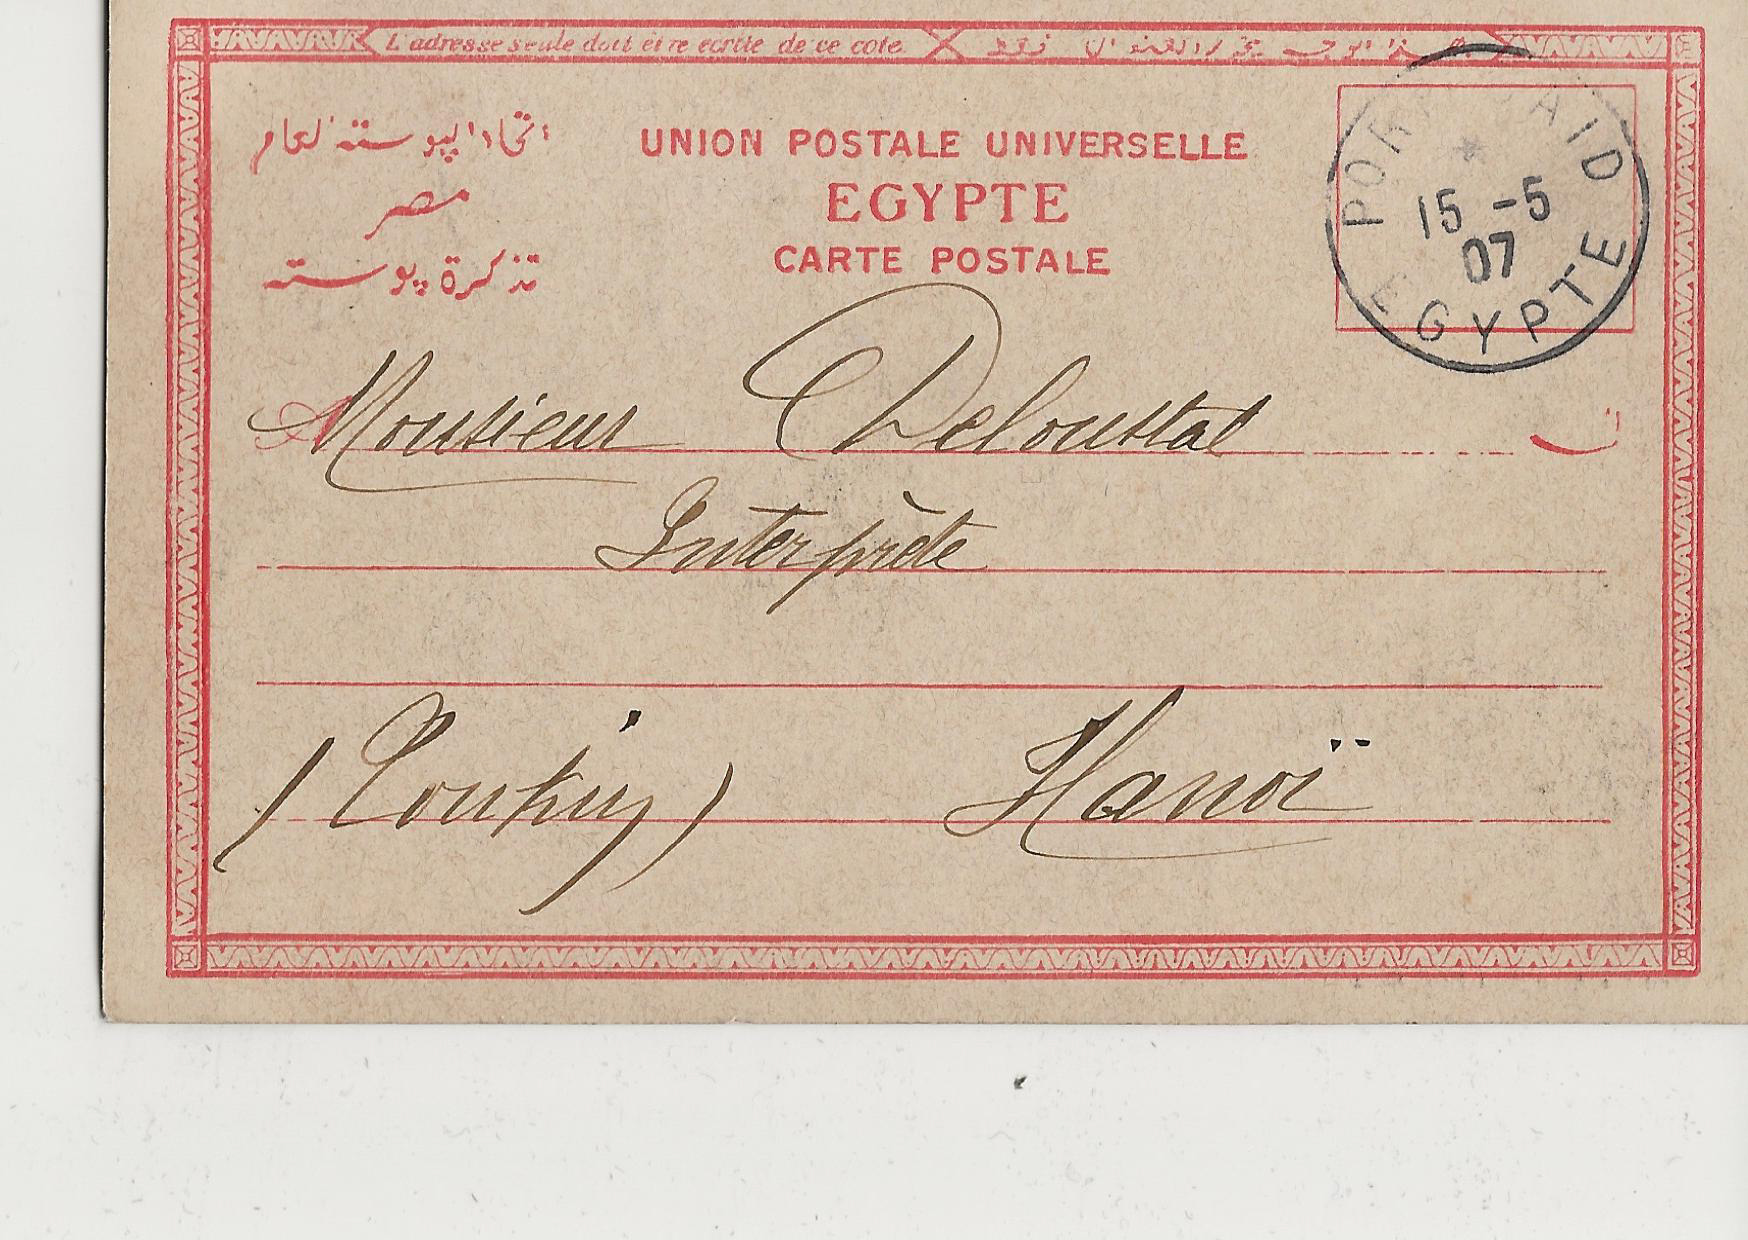 L'adresse seule doit être écrite de ce côté.
اتحاد البوسته العام
UNION POSTALE UNIVERSELLE
مصر
EGYPTE
تذكرة بوسته
CARTE POSTALE
PORT SAID
15 -5
07
EGYPTE
A
Monsieur Deloustal
Interprète
(Tonkin) Hanoï